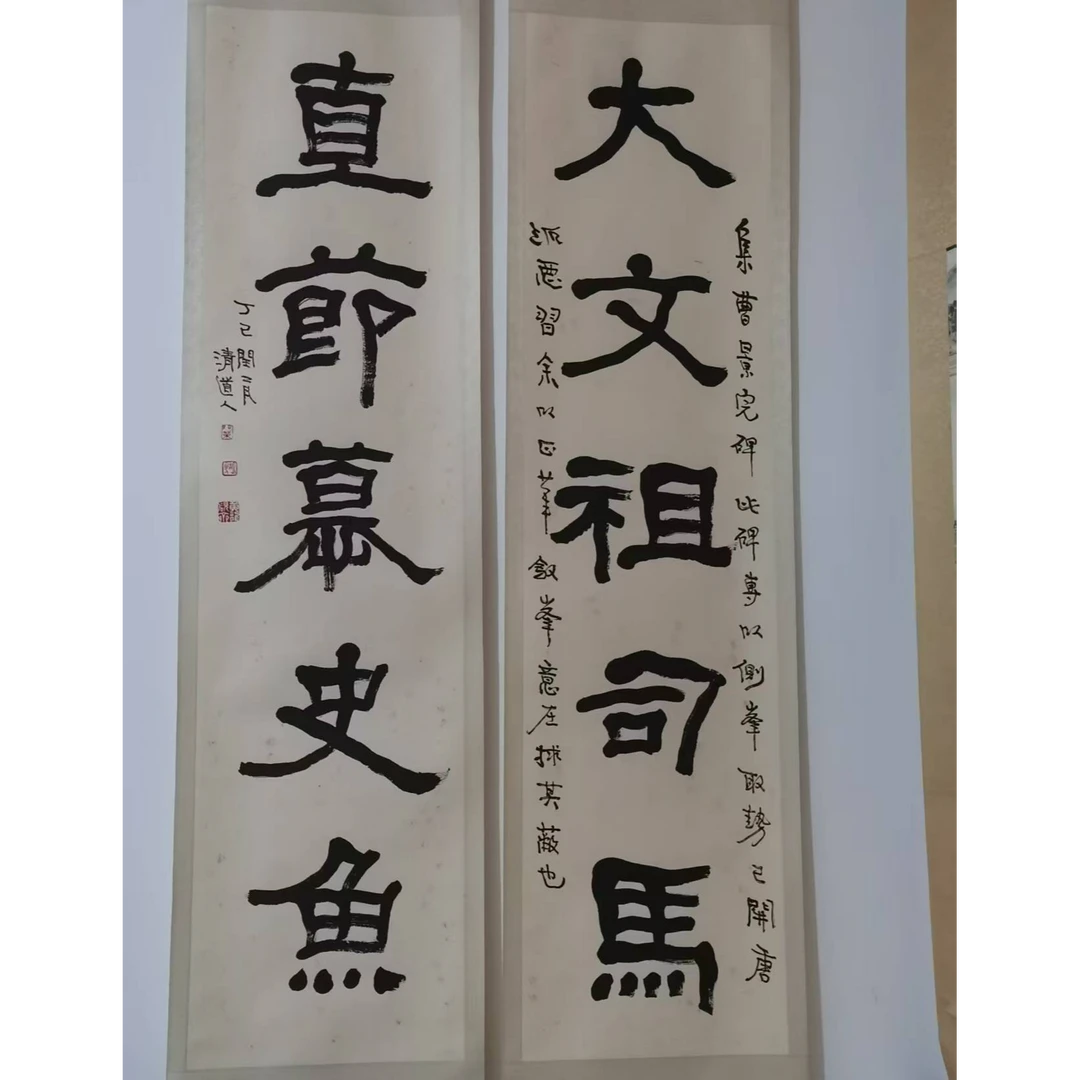 大文祖司馬
集曹景完碑此碑專以側峯取勢已開唐
派惡習余以正筆斂峯意在捄其蔽也
直節慕史魚
丁巳閏二月
清道人